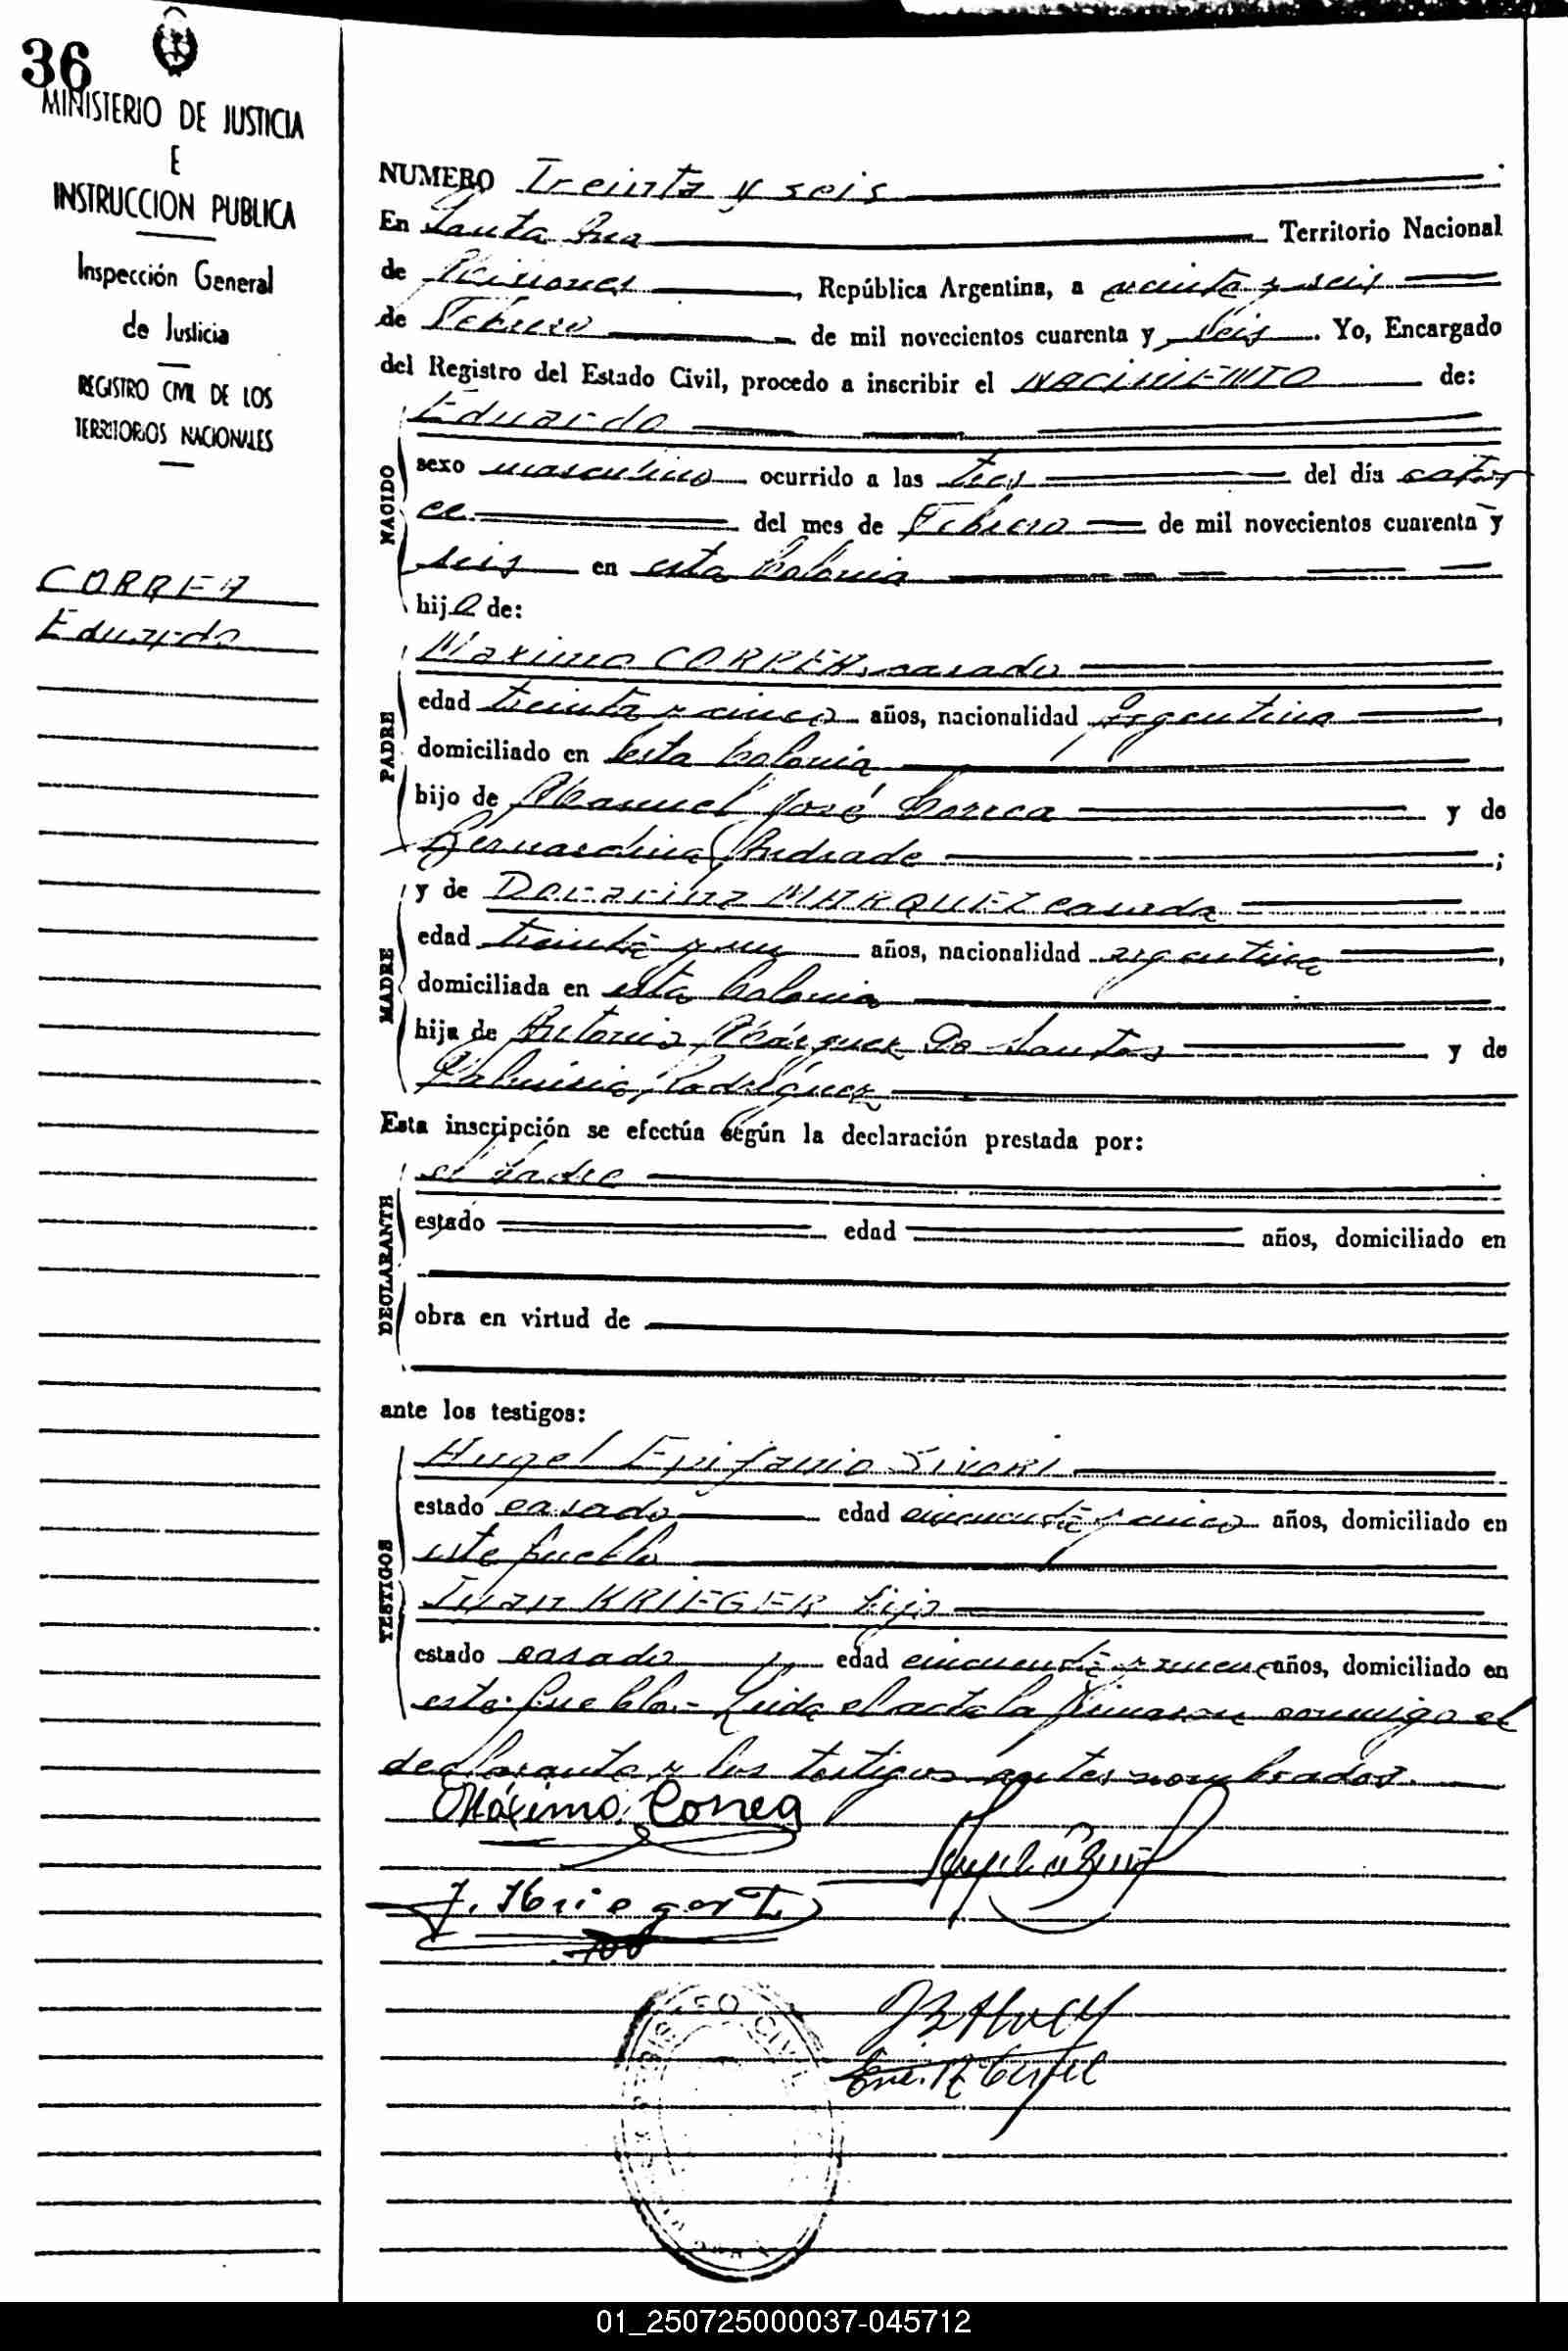 36
MINISTERIO DE JUSTICIA
E
INSTRUCCION PUBLICA
Inspección General
de Justicia
REGISTRO CIVIL DE LOS
TERRITORIOS NACIONALES
CORREA
Eduardo
NUMERO Treinta y seis
En Santa Ana Territorio Nacional
de Misiones, República Argentina, a veinte y seis
de Febrero de mil novecientos cuarenta y seis. Yo, Encargado
del Registro del Estado Civil, procedo a inscribir el NACIMIENTO de:
Eduardo
NACIDO
sexo masculino ocurrido a las tres del día cator
ce del mes de Febrero de mil novecientos cuarenta y
seis en esta Colonia
hijo de:
PADRE
Maximo CORREA, casado
edad treinta y cinco años, nacionalidad Argentina,
domiciliado en esta Colonia
hijo de Manuel José Correa y de
Bernardina Andrade;
MADRE
y de MARQUEZ casada
edad treinta y un años, nacionalidad argentina,
domiciliada en esta Colonia
hija de Antonio Márquez Do Santos y de
Rodríguez
Esta inscripción se efectúa según la declaración prestada por:
DECLARANTE
el padre
estado edad años, domiciliado en
obra en virtud de
ante los testigos:
TESTIGOS
Angel Epifanio SIVORI
estado casado edad cincuenta y cinco años, domiciliado en
este pueblo
Juan KRIEGER hijo
estado casado edad cincuenta y nueve años, domiciliado en
este pueblo.- Leida el acta la firmaron conmigo el
declarante y los testigos antes nombrados.
Máximo Correa
REGISTRO CIVIL
01_250725000037-045712